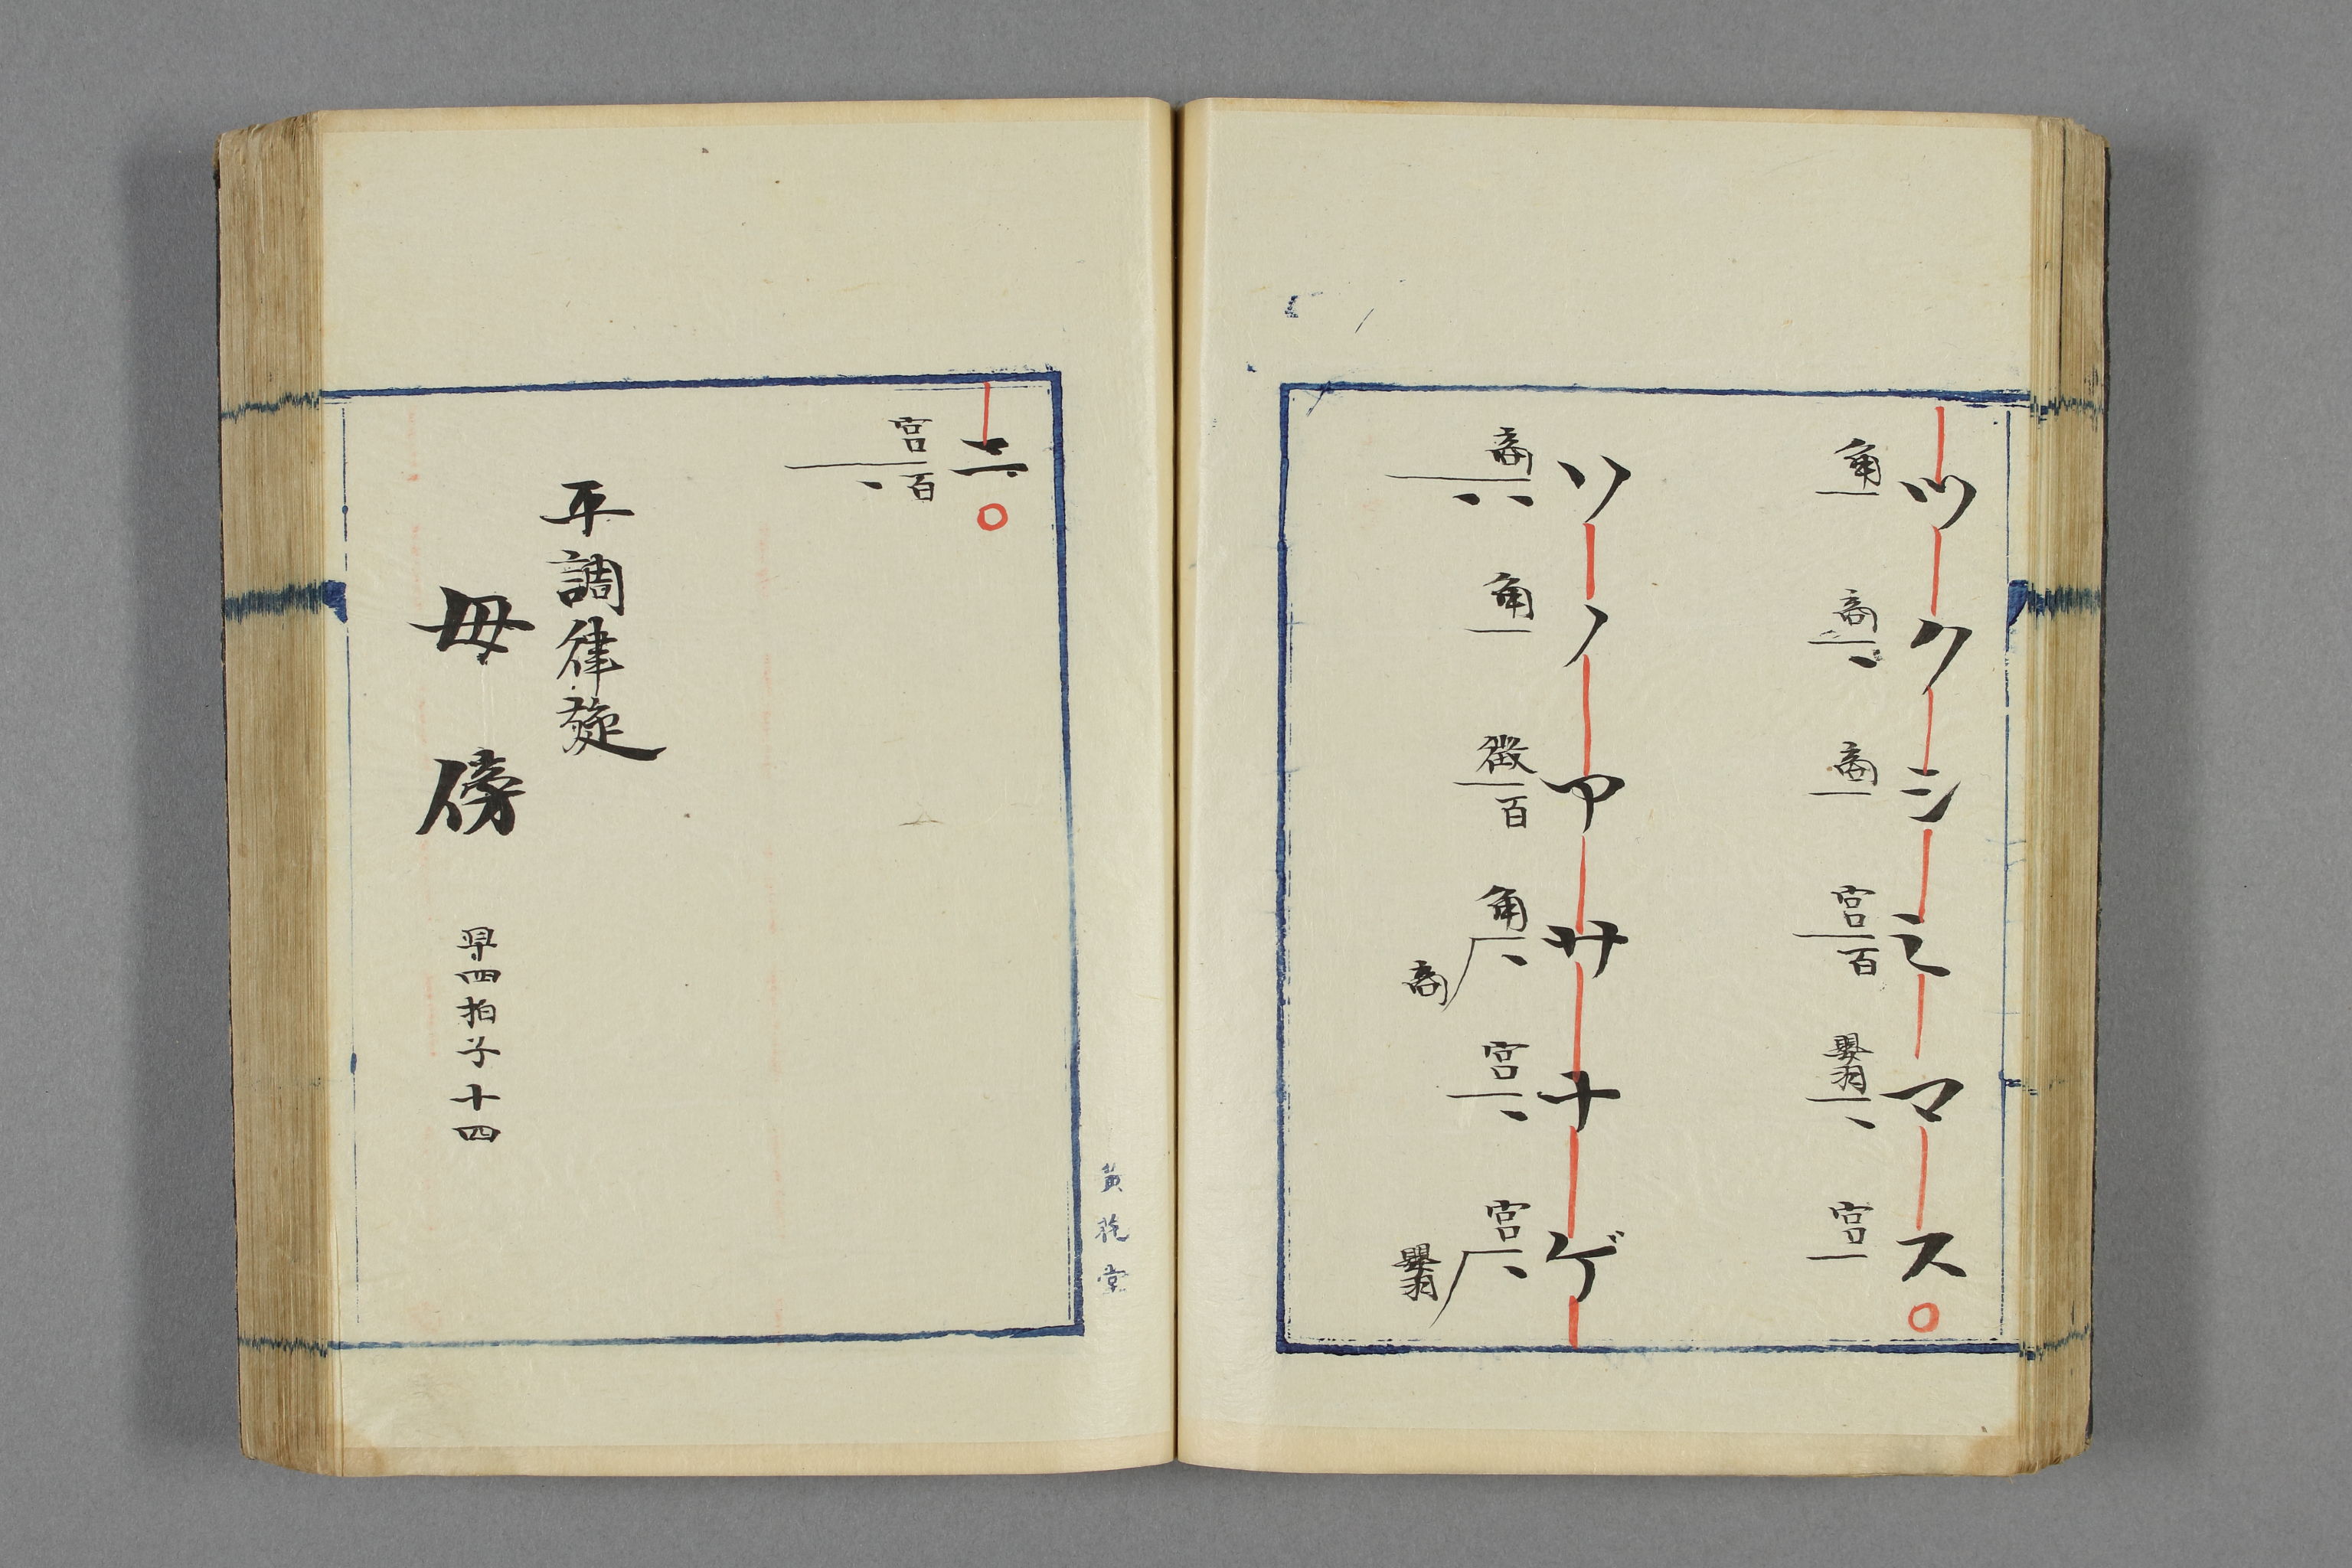 ツクシミマス
角 商 商 宮百 嬰羽 宮
ソノアサナゲ
商 角 徴百 角商 宮 宮嬰羽
ニ
宮百
平調律旋
毋傍
早四拍子十四
黄花堂